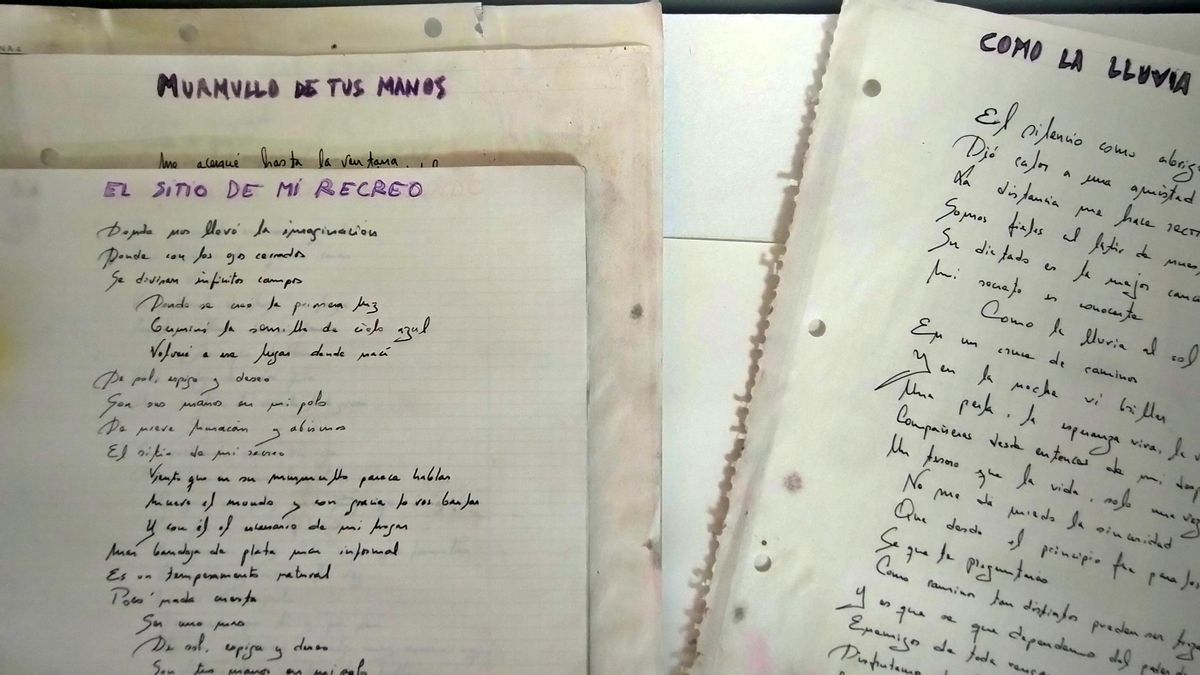 MURMULLO DE TUS MANOS
Me acerqué hasta la ventana
EL SITIO DE MI RECREO
Donde nos llevó la imaginacion
Donde con los ojos cerrados
Se divisan infinitos campos
Donde se creo la primera luz
Germinó la semilla de cielo azul
Volveré a ese lugar donde nací
De sol, espiga y deseo
Son sus manos en mi pelo
De nieve huracán y abismos
El sitio de mi recreo
Viento que en su murmullo parece hablar
Mueve el mundo y con gracia lo ves bailar
Y con él el escenario de mi hogar
Mar bandeja de plata mar infernal
Es un temperamento natural
Poco ó nada cuesta
Ser uno mas
De sol, espiga y deseo
Son tus manos en mi pelo
COMO LA LLUVIA
El silencio como abrigo
Dió calor a una amistad
La distancia me hace
Somos fieles al latir de
Su dictado es la mejor
Mi secreto es conocerte
Como la lluvia al sol
En un cruce de caminos
Y en la noche vi brillar
Una perla, la esperanza viva, la
Compañeras desde entonces de mi
Un tesoro que la vida, solo una vez
No me da miedo la sinceridad
Que desde el principio fue para los
Se que te preguntarás
Como caminos tan distintos pueden ser
Y es que se que dependemos del
Enemigos de toda
Disfrutamos